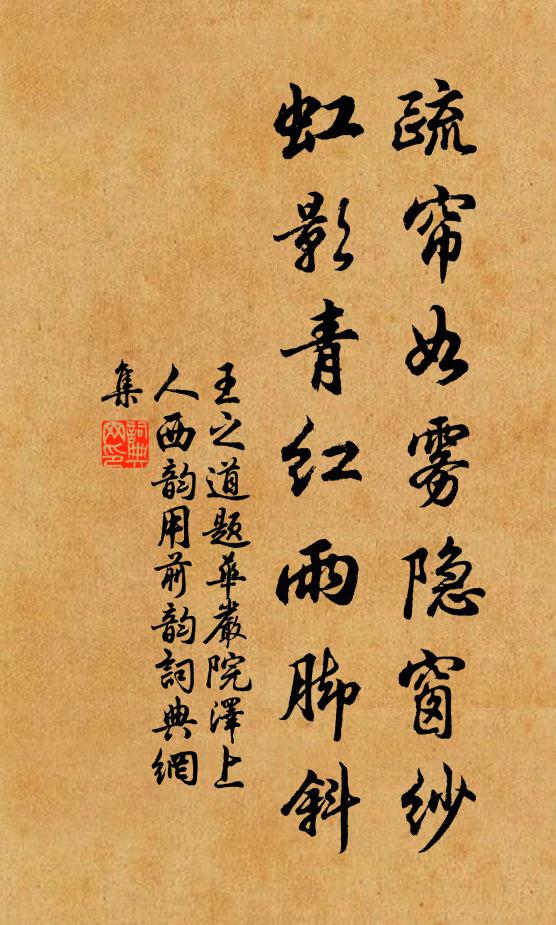 疏帘如雾隐窗纱
虹影青红雨脚斜
王之道题华严院泽上
人西韵用前韵词典网
集
词典
网印